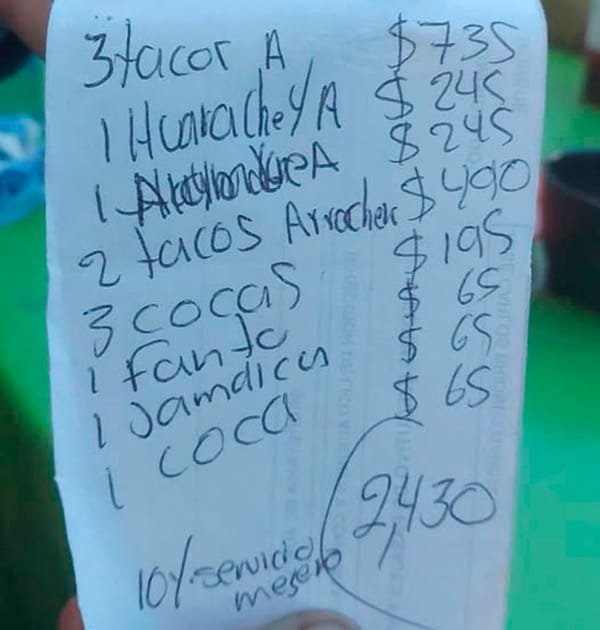 3 tacos A $735
1 Huarache Y A $245
1 A $245
2 tacos Arrachera $490
3 cocas $195
1 fanta $65
1 Jamaica $65
1 coca $65
2,430
10% servicio
mesero